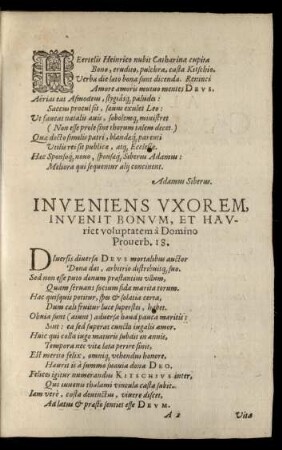 HEertelii Heinrico nubit Catharina cupita
Bono, erudito, pulchra, casta Kitschio.
Verba die læto bona sunt dicenda. Revinci
Amore amoris mutuo mentes DEVS.
Aërias eat Asmodeus, stygiasq; paludes:
Satens procul sit, sæuus exulet Leo:
Vt sanctas natalis auis, sobolemq; ministret
(Non esse prole sine thorum talem decet.)
Quæ docto similis patri, blandæq; parenti
Vtilis rei sit publicæ, atq; Ecclesiæ.
Hæc Sponsoq; nouo, sponsæq; Siberus Adamus:
Meliora qui sequuntur alij concinent.
Adamus Siberus.
INVENIENS VXOREM,
INVENIT BONVM, ET HAV-
riet voluptatem à Domino
Prouerb. 18.
DIuersis diuersa DEVS mortalibus auctor
Dona dat, arbitrio distribuitq; suo.
Sed non esse puto donum præstantius vllum,
Quam seruans socium fida marita torum.
Hac quisquis potitur, spes & solatia certa,
Dum cali fruitur luce superstes, habet.
Obuia sunt (autem) aduersa haud pauca maritis:
Sunt: ea sed superat cuncta iugalis amor.
Huic qui colla iugo maturis subdit in annis,
Tempora nec vitæ læta perire sinit.
Est merito felix, omniq; vehendus honore.
Hausit is à summo gaudia docta DEO.
Felices igitur numerandus KITSCHIVS inter,
Qui iuueni thalami vincula casta subit.
Iam verè, casta deuinctus, viuere discet,
Ad latus & præsto sentiet esse DEVM.
A 2 Vitæ